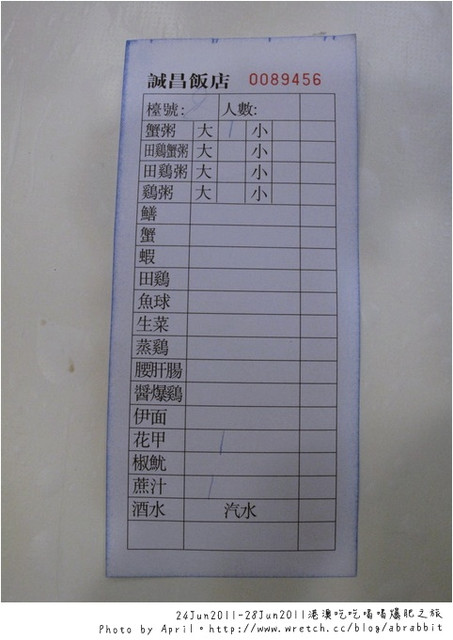 誠昌飯店 0089456
檯號: 人數:
蟹粥 大 / 小
田鷄蟹粥 大 小
田鷄粥 大 小
鷄粥 大 小
鱔
蟹
蝦
田鷄
魚球
生菜
蒸鷄
腰肝腸
醬爆鷄
伊面
花甲 /
椒魷
蔗汁 /
酒水 汽水
24Jun2011-28Jun2011港澳吃吃喝喝爆肥之旅
Photo by April。http://www.wretch.cc/blog/abrabbit